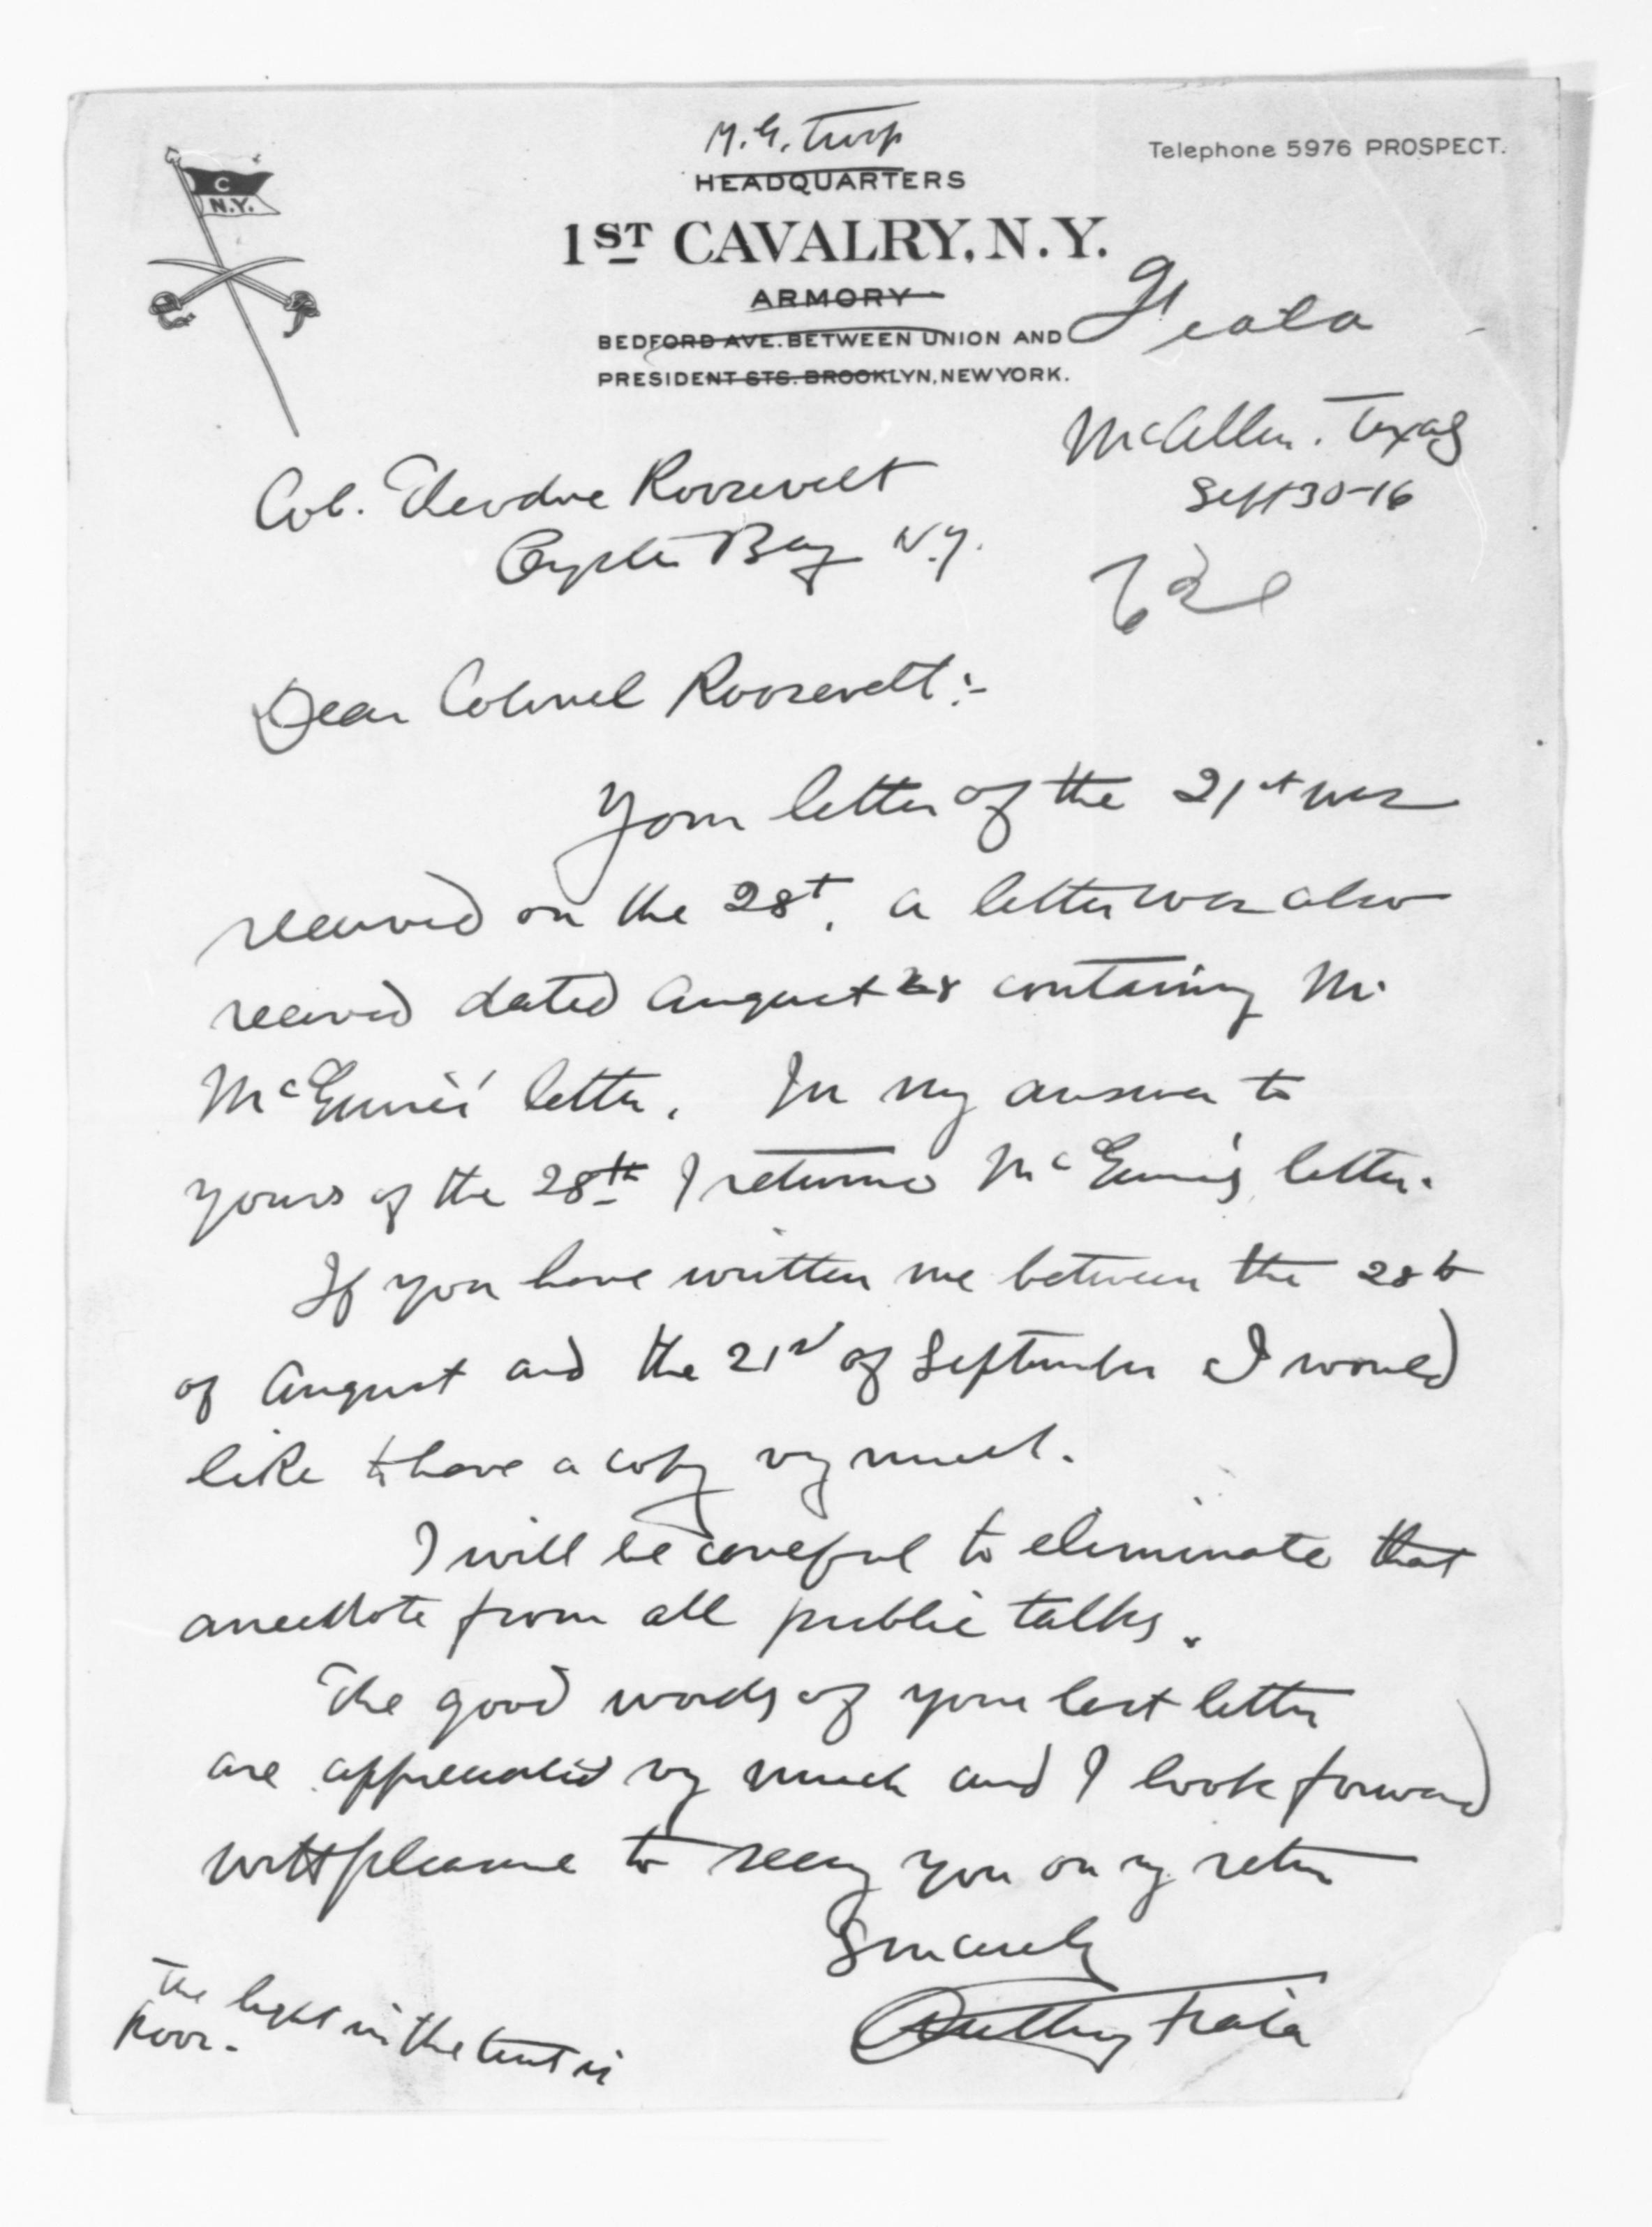 C
N.Y.
M.G. Troop
Telephone 5976 PROSPECT.
HEADQUARTERS
1ST CAVALRY, N.Y.
ARMORY
BEDFORD AVE. BETWEEN UNION AND
PRESIDENT STS. BROOKLYN, NEW YORK.
Fiala
McAllen. Texas
Sept 30-16
Col. Theodore Roosevelt
Oyster Bay N.Y.
Dear Colonel Roosevelt:-
Your letter of the 21st was
received on the 28t. a letter was also
received dated August 28 containing Mr.
letter. In my answer to
yours of the 28th I returned letter.
If you have written me between the 28th
of August and the 21st of September I would
like to have a copy very much.
I will be careful to eliminate that
anecdote from all public talks.
The good words of your last letter
are appreciated very much and I look forward
with pleasure to seeing you on my return
Sincerely
Anthony Fiala
The light in the tent is
poor.